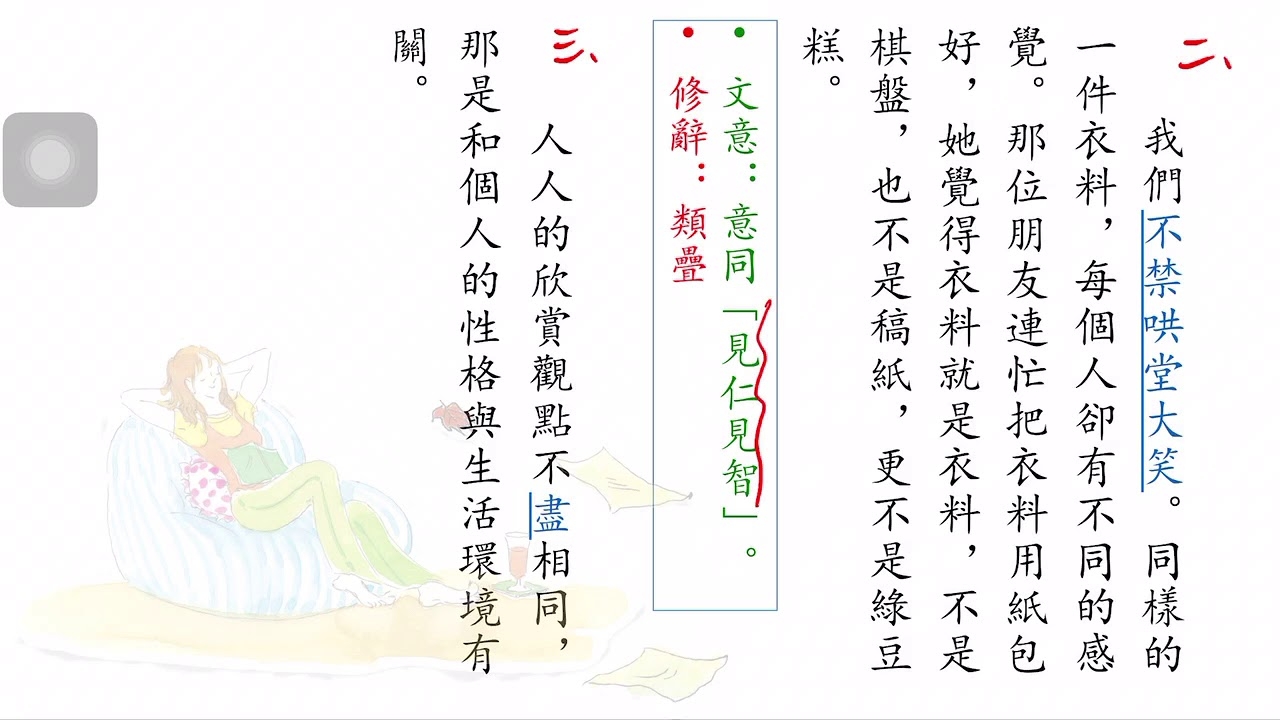 二、
我們不禁哄堂大笑。同樣的
一件衣料，每個人卻有不同的感
覺。那位朋友連忙把衣料用紙包
好，她覺得衣料就是衣料，不是
棋盤，也不是稿紙，更不是綠豆
糕。
•文意：意同「見仁見智」。
•修辭：類疊
三、
人人的欣賞觀點不盡相同，
那是和個人的性格與生活環境有
關。